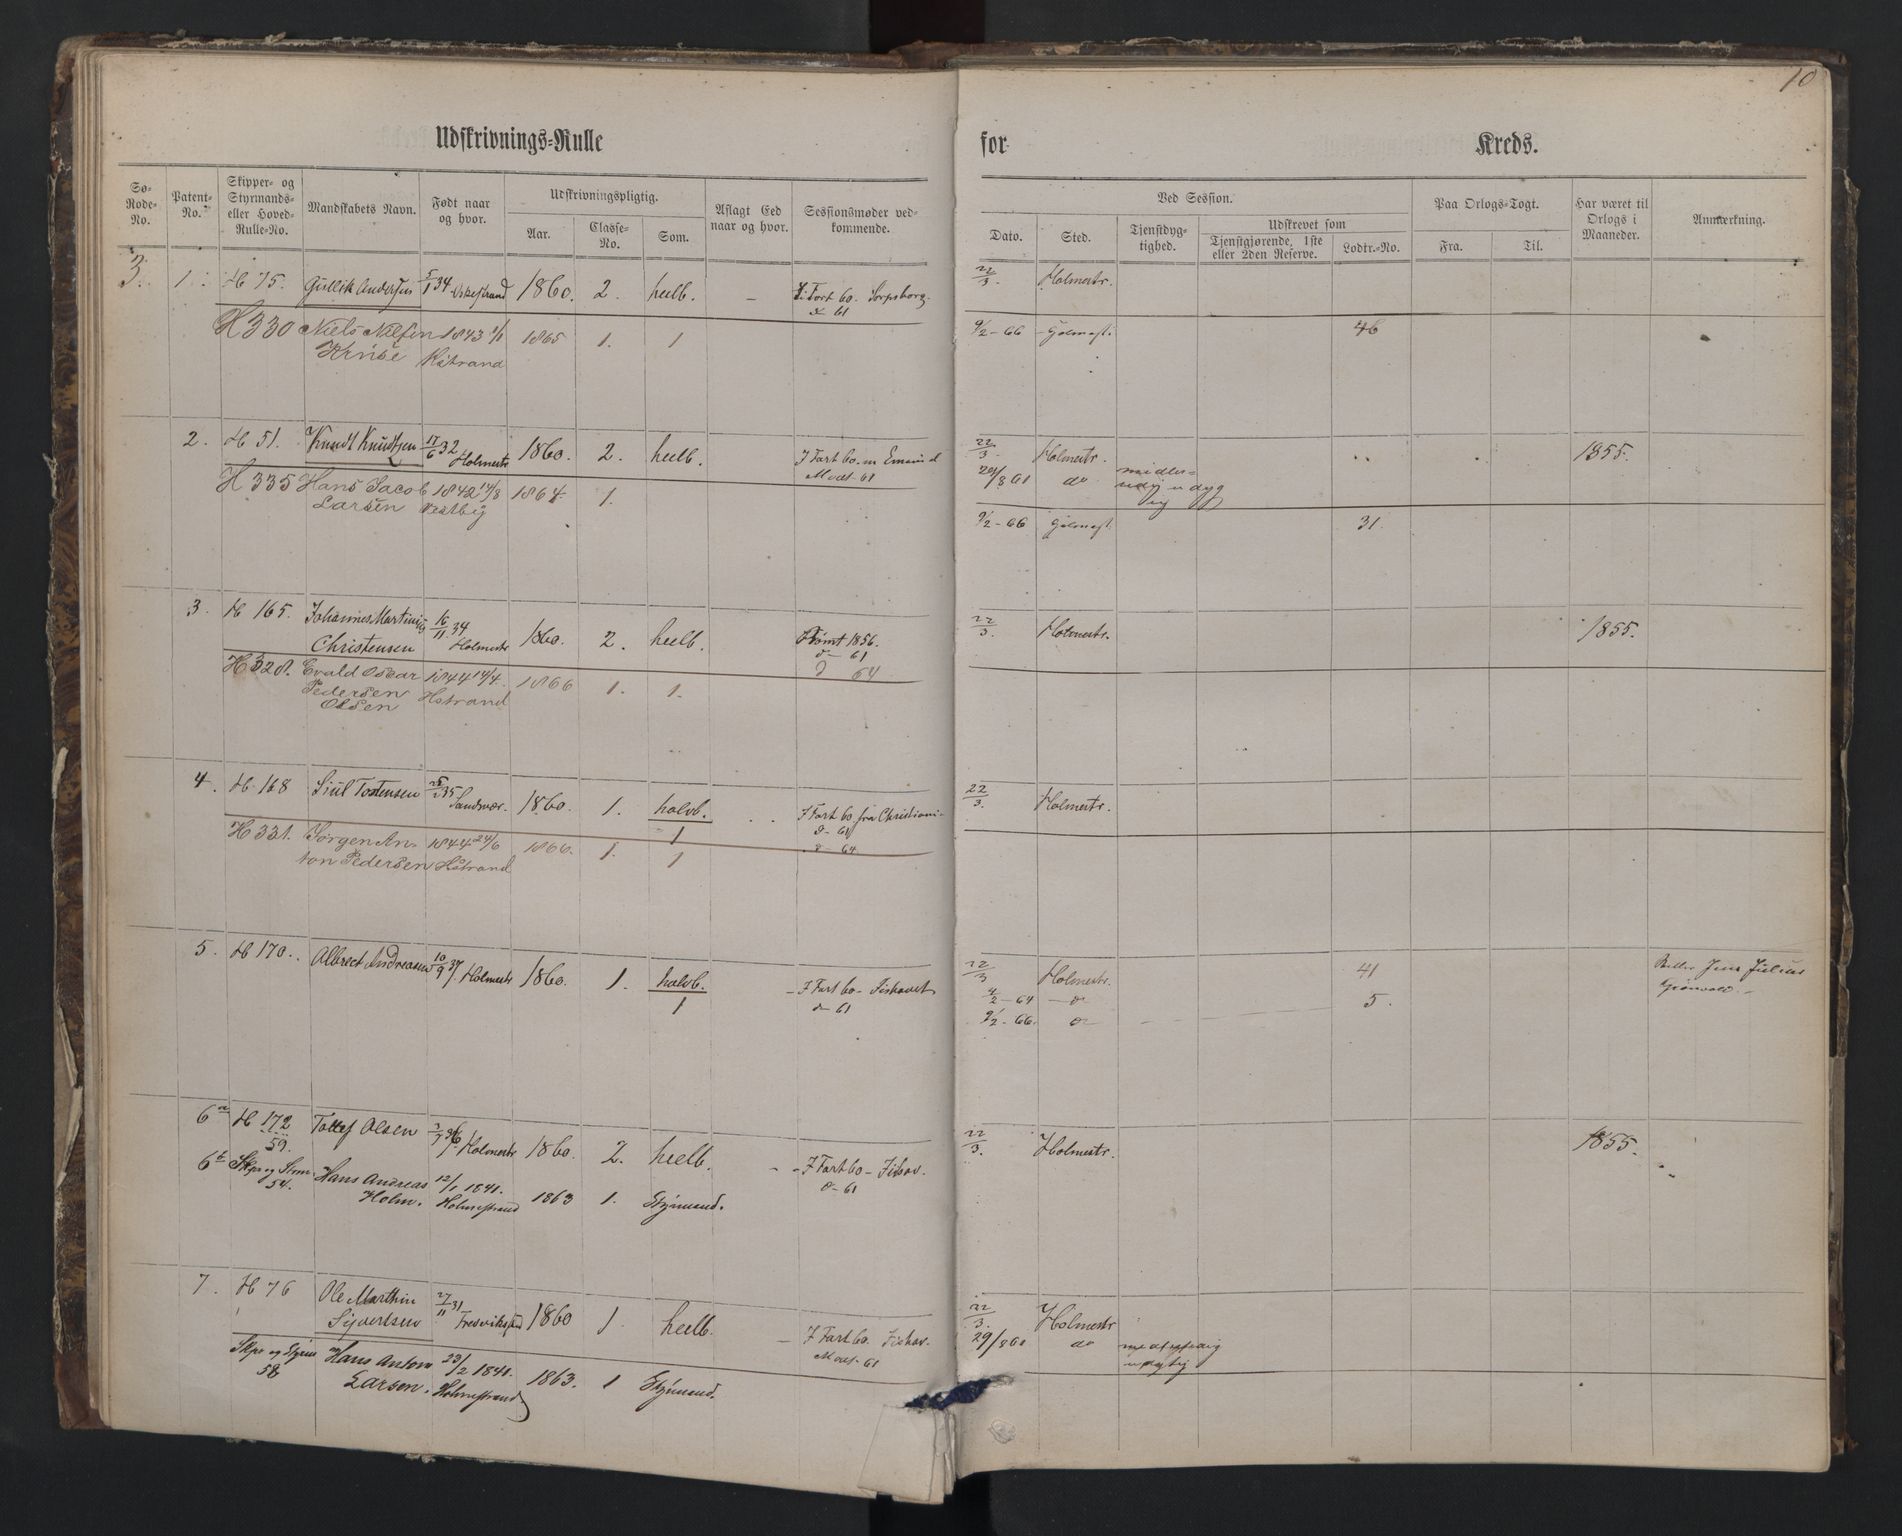 10
Udskrivnings-Rulle for Kreds.
Sø-Rode-No. Patent-No. Skipper- og Styrmands- eller Hoved-Rulle-No. Mandskabets Navn. Født naar og hvor. Udskrivningspligtig. Aflagt Eed naar og hvor. Sessionsmøder vedkommende.
Aar. Classe-No. Som.
Ved Session. Paa Orlogs-Togt. Har været til Orlogs i Maaneder. Anmerkning.
Dato. Sted. Tjenstdygtighed. Udskrevet som Fra. Til.
Tjenstgjørende, 1ste eller 2den Reserve. Lodtr.-No.
3. 1. H 75. Gullik Andersen 5/1 34 1860. 2. heelb. I Fart 60. Sarpsborg. 22/3. Holmestr.
d 61
H 330 Niels Nilsen 1843 1/1 1865 1. 1 9/2-66 46
Kruse Hstrand
2. H 51. Knudt Knudtsen 17/6 32 Holmestr 1860. 2. heelb. I Fart 60. 22/3. Holmestr. 1855.
Modt. 61 29/8 61 do
H 335 Hans Jacob 1842 14/8 1864. 1.
Larsen Vestby 9/2-66 31.
3. H 165. Johannes Martinius 16/11 34 1860. 2. heelb. 1856. 22/3. Holmestr. 1855.
Christensen Holmestr d- 61
H 328. Evald Oscar 1844 14/4. 1866 1. 1. d 64
Pedersen Hstrand
Olsen
4. H 168 Siul Tostensen 35 Sandsvær. 1860. 1. halvb. I Fart 60 fra Christiania 22/3. Holmestr.
1 d- 61
H 331. Jørgen An- 1844 24/6 1866. 1. 1 d- 64
ton Pedersen Hstrand
5. H 170. Albrect Andreasen 10/9 37. Holmestr 1860. 1. halvb. I Fart 60- 22/3 Holmestr. 41 Jens Julius
1 d- 61 4/2-64 - do 5. Grønvold.
9/2-66. do
6a H 172 Tollef Olsen 3/7 36 Holmestr 1860. 2. heelb. I Fart 60- 22/3. Holmestr. 1855.
59. d- 61
6b Skpr og Strm Hans Andreas 12/1 1841. 1863 1. Styrmand.
54. Holm. Holmestrand
7. H 76 Ole Marthin 27/11 31 1860 1. heelb. I Fart 60. 22/3. Holmestr
Syvertsen Modt. 61 29/8 60 do
Skpr og Styrm Hans Anton 23/2 1841. 1863. 1 Styrmand.
58 Larsen. Holmestrand